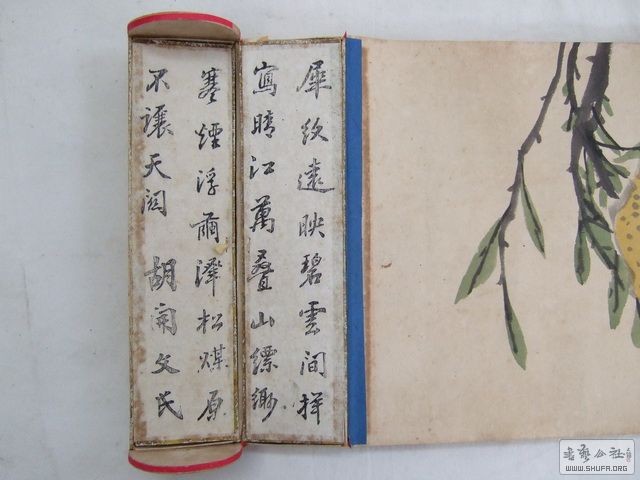 犀紋遠映碧雲間擇
寫晴江萬叠山縹緲
塞煙浮爾澤松煤原
不讓天閎 胡開文氏
WWW.SHUFA.ORG